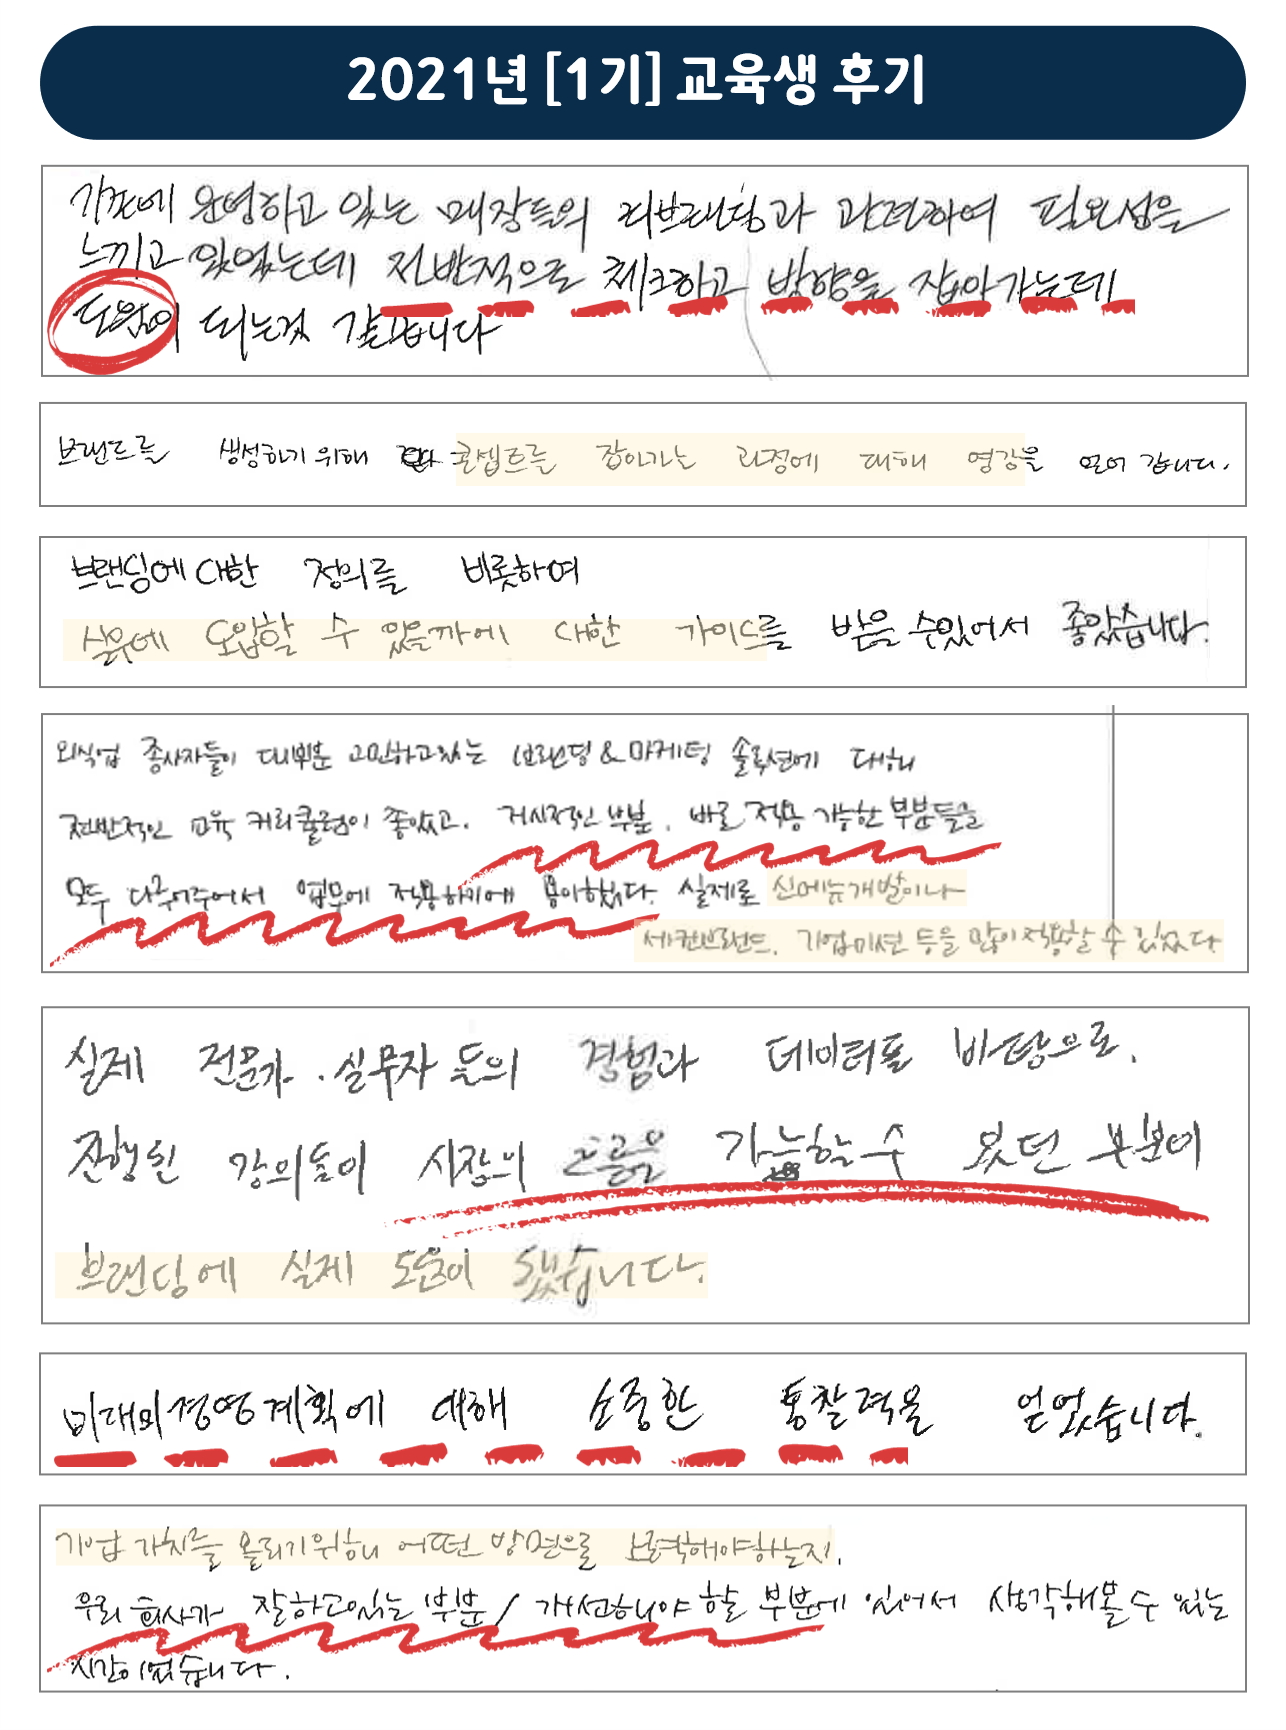 2021년 [1기] 교육생 후기
기존에 운영하고 있는 매장들의 리브랜딩과 관련하여 필요성을
느끼고 있었는데 전반적으로 체크하고 방향을 잡아가는데
도움이 되는것 같습니다
브랜드를 생성하기 위해 콘셉트를 잡아가는 과정에 대해 영감을 얻어 갑니다.
브랜딩에 대한 정의를 비롯하여
실무에 도입할 수 있을까에 대한 가이드를 받을 수있어서 좋았습니다.
외식업 종사자들이 대부분 고민하고있는 브랜딩 & 마케팅 솔루션에 대해
전반적인 교육 커리큘럼이 좋았고. 거시적인 부분, 바로 적용 가능한 부분들을
모두 다루어주어서 업무에 적용하기에 용이했다. 실제로 신메뉴개발이나
세컨브랜드, 기업미션 등을 많이 적용할 수 있었다
실제 전문가 . 실무자 들의 경험과 데이터를 바탕으로.
진행된 강의들이 시장의 가늠할수 있던 부분이
브랜딩에 실제 도움이 됐습니다.
미래의 경영계획에 대해 소중한 통찰력을 얻었습니다.
기업 가치를 올리기위해 어떤 방면으로 노력해야하는지.
우리 회사가 잘하고있는 부분 / 개선해야 할 부분에 있어서 생각해볼 수 있는
시간이었습니다.